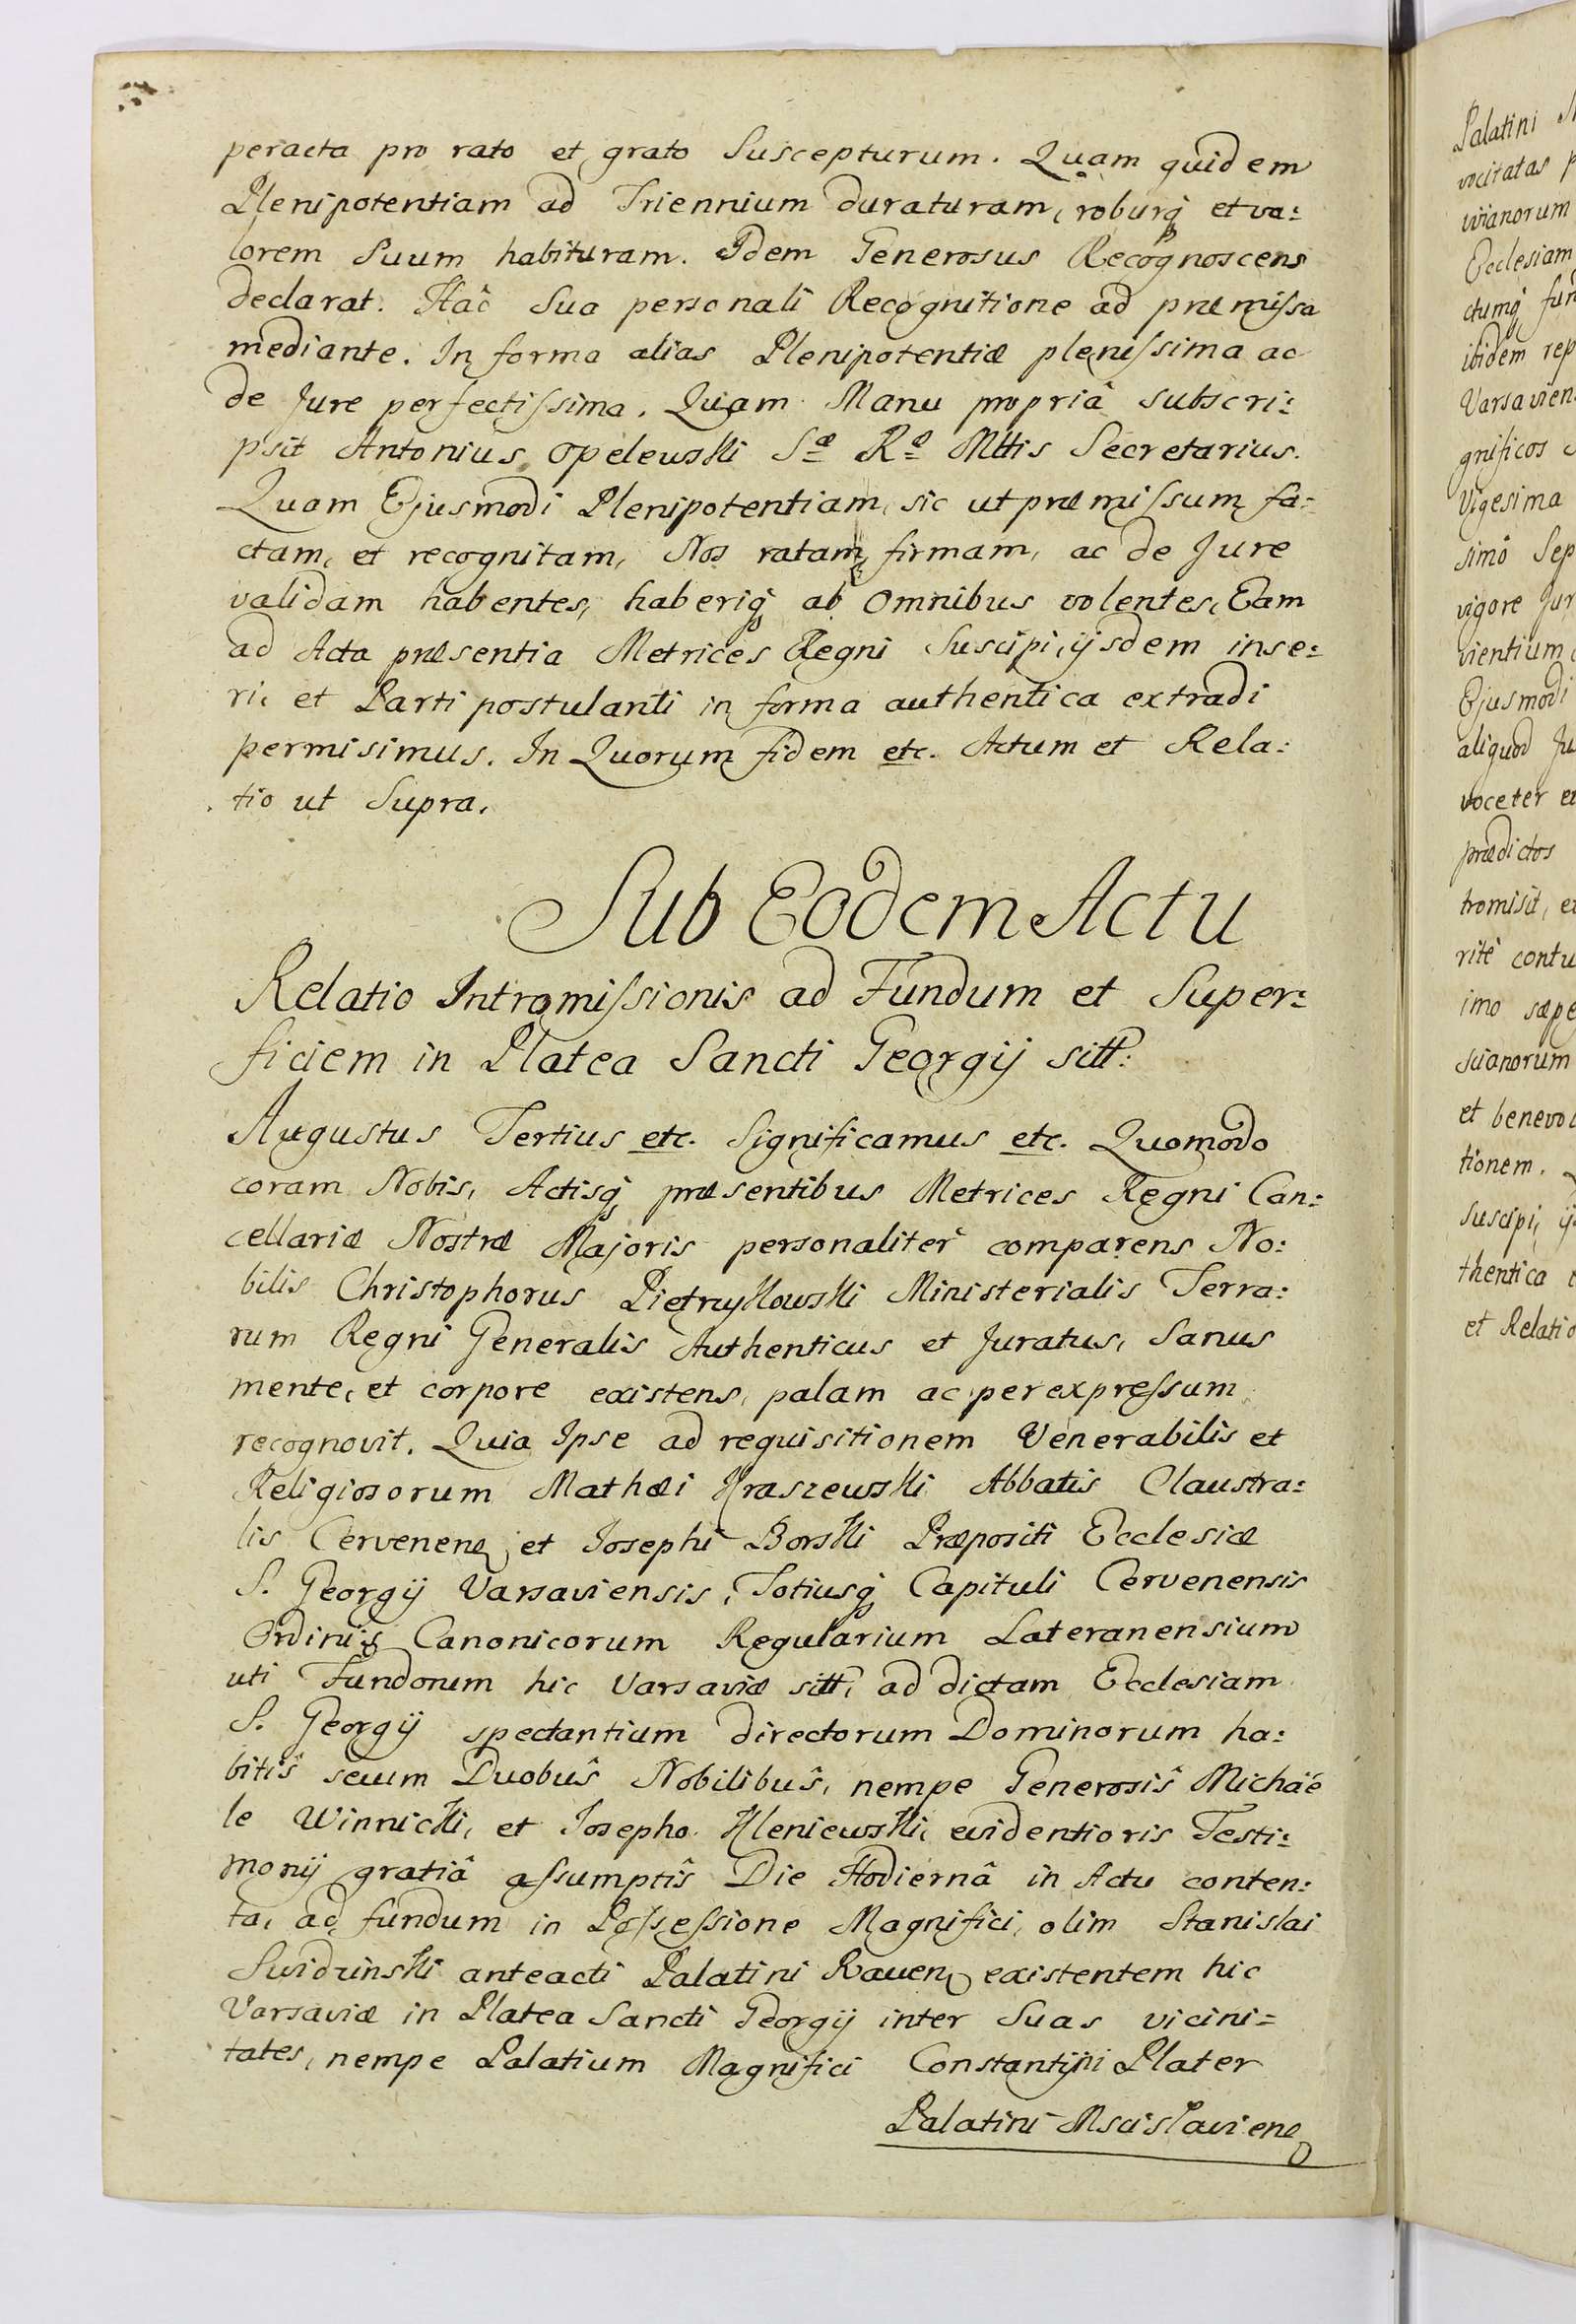 peracta pro rato et grato Suscepturum. Quam quidem
Plenipotentiam ad Triennium duraturam, roburq́ et va:
lorem Suum habituram. Idem Generosus Recognoscens
declarat. Hac Sua personali Recognitione ad præmiſsa
mediante. In forma alias Plenipotentiæ pleniſsima ac
de Jure perfectiſsima. Quam Manu propriâ subscri:
psit Antonius Opelewski Sæ Ræ Mttis Secretarius.
Quam Ejusmodi Plenipotentiam, sic ut præmiſsum fa:
ctam, et recognitam, Nos ratam, firmam, ac de Jure
validam habentes, haberiq́ ab Omnibus volentes, Eam
ad Acta præsentia Metrices Regni Suscipi, ijsdem inse:
ri, et Parti postulanti in forma authentica extradi
permisimus. In Quorum fidem etc. Actum et Rela:
tio ut Supra.
Sub Eodem Actu
Relatio Intromiſsionis ad Fundum et Super:
ficiem in Platea Sancti Georgij sitt:
Augustus Tertius etc. Significamus etc. Quomodo
coram Nobis, Actisq́ præsentibus Metrices Regni Can:
cellariæ Nostræ Majoris personaliter comparens No:
bilis Christophorus Pietrzykowski Ministerialis Terra:
rum Regni Generalis Authenticus et Juratus, Sanus
mente, et corpore existens, palam ac per expreſsum
recognovit. Quia Ipse ad requisitionem Venerabilis et
Religiosorum Mathæi Kraszewski Abbatis Claustra:
lis Cervenen et Josephi Borski Præpositi Ecclesiæ
S. Georgij Varsaviensis, Totiusq́ Capituli Cervenensis
Ordinis Canonicorum Regularium Lateranensium
uti Fundorum hic Varsaviæ sitt, ad dictam Ecclesiam
S. Georgij spectantium directorum Dominorum ha:
bitis secum Duobus Nobilibus, nempe Generosis Michaé
le Winnicki, et Josepho Kleniewski, evidentioris Testi:
monij gratiâ aſsumptis Die Hodiernâ in Actu conten:
ta, ad fundum in Poſseſsione Magnifici olim Stanislai
Swidzinski anteacti Palatini Raven existentem hic
Varsaviæ in Platea Sancti Georgij inter Suas vicini=
tates, nempe Palatium Magnifici Constantini Plater
Palatini Mscislavien
Palatini
vocitatas
vianorum
Ecclesiam
ctumq́
ibidem
Varsavien
gnificos
Vigesima
simo Sep
vigore Jur
vientium
Ejusmodi
aliquod Ju
voceter
prædictos
tromisit,
rite contu
imo sæpe
scianorum
et benevo
tionem.
suscipi,
thentica
et Relatio